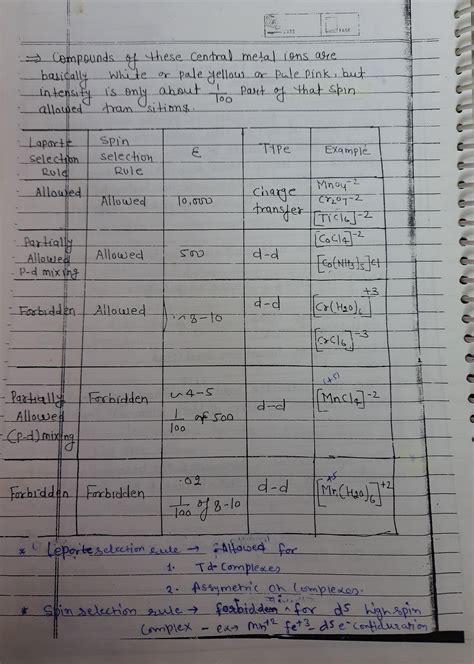 ⇒ Compounds of these central metal ions are
basically white or pale yellow or Pale Pink, but
intensity is only about 1/100 part of that spin
allowed transitions.
Laporte selection Rule | Spin selection Rule | ε | TYPE | Example
Allowed | Allowed | 10,000 | charge transfer | MnO4-2
Cr2O7-2
[TiCl6]-2
Partially Allowed P-d mixing | Allowed | 500 | d-d | [CoCl4]-2
[Co(NH3)5]Cl
Forbidden | Allowed | ~8-10 | d-d | [Cr(H2O)6]+3
[CrCl6]-3
Partially Allowed (P-d) mixing | Forbidden | ~4-5 | d-d | [MnCl4]-2
1/100 of 500
Forbidden | Forbidden | .02 | d-d | [Mn(H2O)6]+2
1/100 of 8-10
* Leporte selection rule → Allowed for
1. Td Complexes
2. Assymetric Oh Complexes.
* Spin selection rule → forbidden for d5 high spin
complex - ex→ Mn+2 fe+3 - d5 e- confiduration